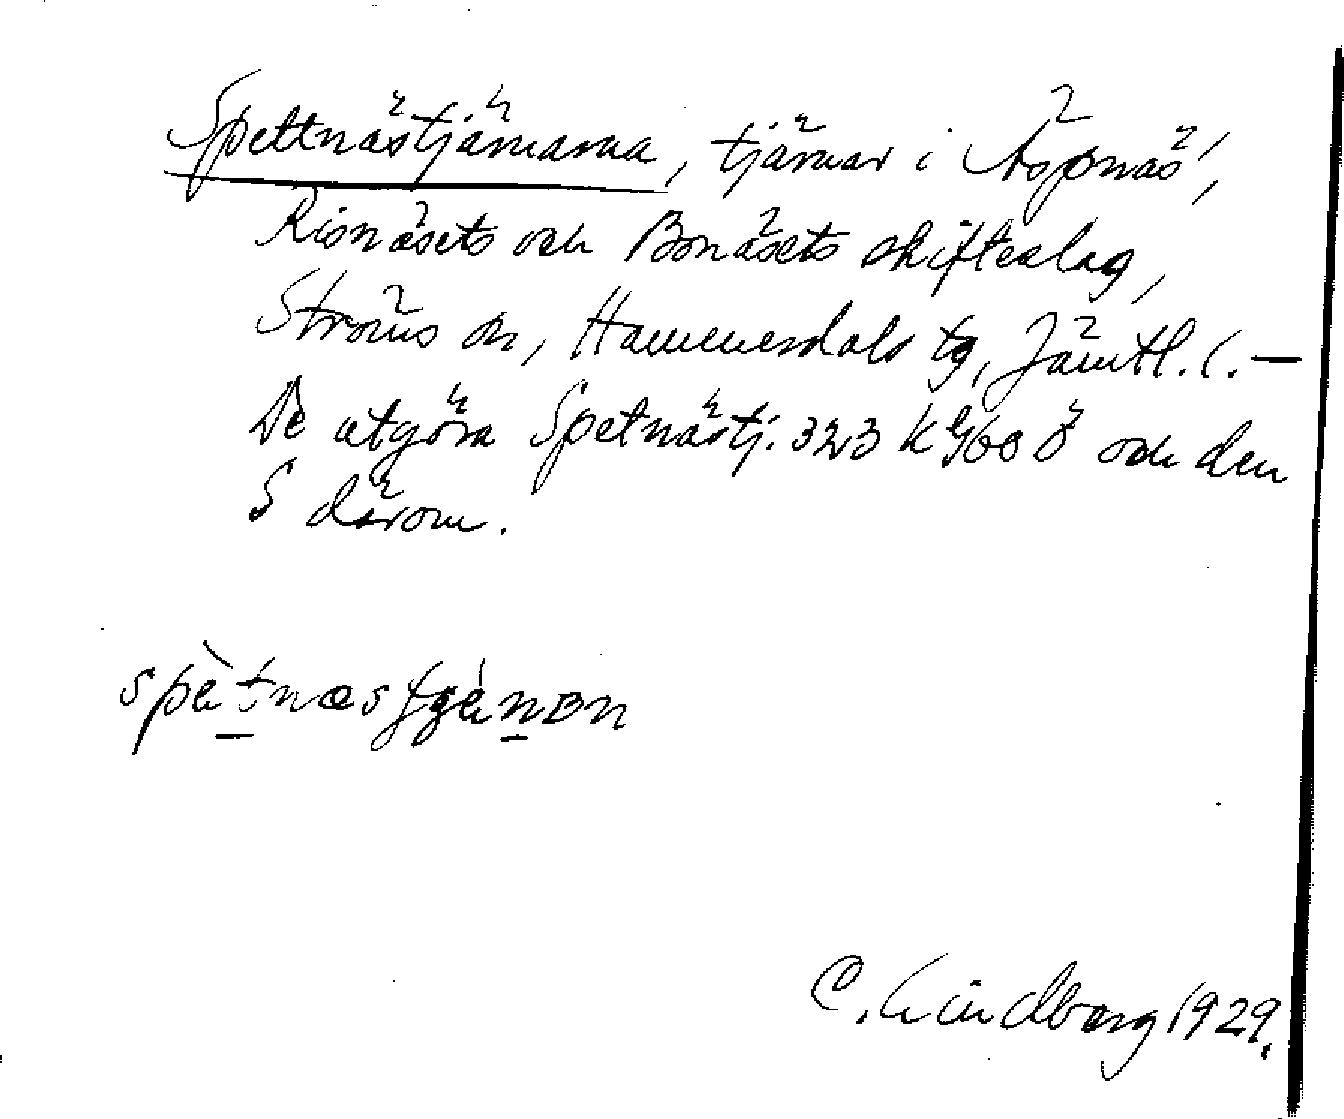 Spettnästjärnarna, tjärnar i Äspnäs,
Risnäsets och Bonäsets skifteslag,
Ströms sn, Hammerdals tg, Jämtl. l. —
De utgöra Spetnästj. 323 k 9608 ö och den
S därom.
C. Lindberg 1929.